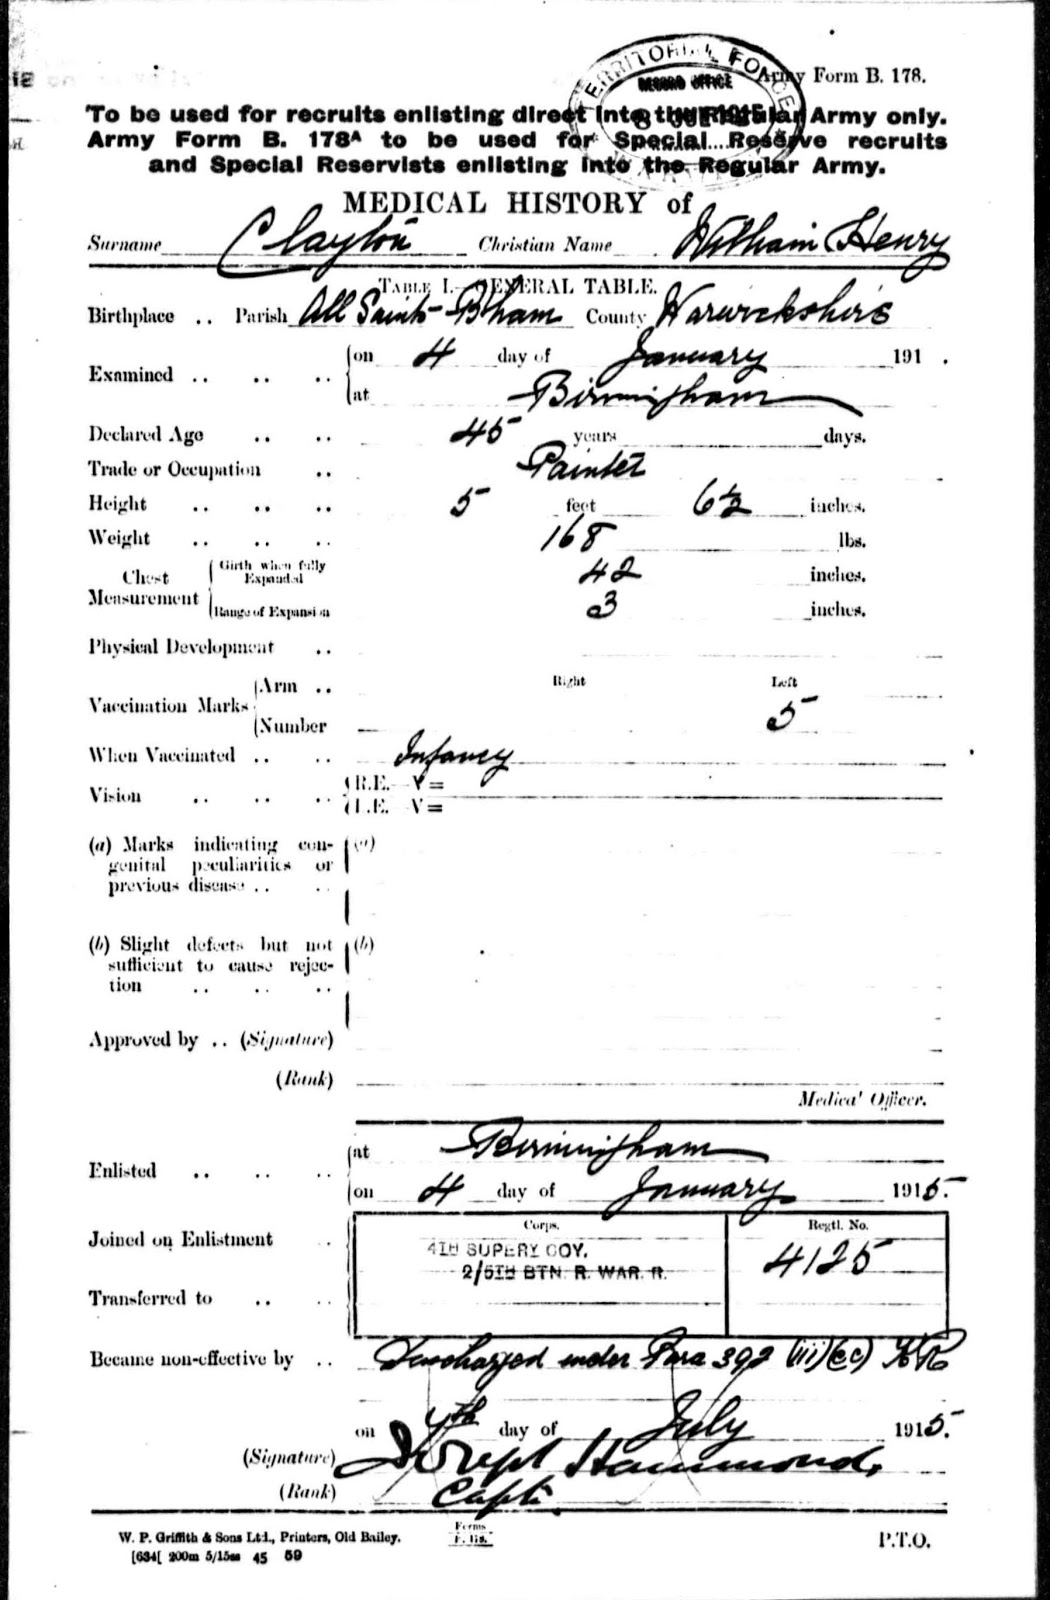 TERRITORIAL FORCE
RECORD OFFICE
Army Form B. 178.
To be used for recruits enlisting direct into the Regular Army only.
Army Form B. 178A to be used for Special Reserve recruits
and Special Reservists enlisting into the Regular Army.
MEDICAL HISTORY of
Surname Clayton Christian Name William Henry
TABLE I.—GENERAL TABLE.
Birthplace .. Parish All Saints B'ham County Warwickshire
Examined .. .. .. on 4 day of January 191 .
at Birmingham
Declared Age .. .. 45 years days.
Trade or Occupation .. Painter
Height .. .. .. 5 feet 6½ inches.
Weight .. .. .. 168 lbs.
Chest Measurement Girth when fully Expanded 42 inches.
Range of Expansion 3 inches.
Physical Development ..
Vaccination Marks Arm .. Right Left
Number 5
When Vaccinated .. .. Infancy
Vision .. .. .. R.E. V=
L.E. V=
(a) Marks indicating con- (a)
genital peculiarities or
previous disease .. ..
(b) Slight defects but not (b)
sufficient to cause rejec-
tion .. .. ..
Approved by .. (Signature)
(Rank)
Medical Officer.
Enlisted .. .. .. at Birmingham
on 4 day of January 1915.
Corps. Regtl. No.
Joined on Enlistment .. 4TH SUPERY COY. 4125
2/5TH BTN. R. WAR. R.
Transferred to .. ..
Became non-effective by .. Discharged under Para 392 (iii)(cc) KR
on 4th day of July 1915.
(Signature) Joseph Hammond.
(Rank) Capt.
W. P. Griffith & Sons Ltd., Printers, Old Bailey.
[634[ 200m 5/15 45 59
Forms
P.T.O.